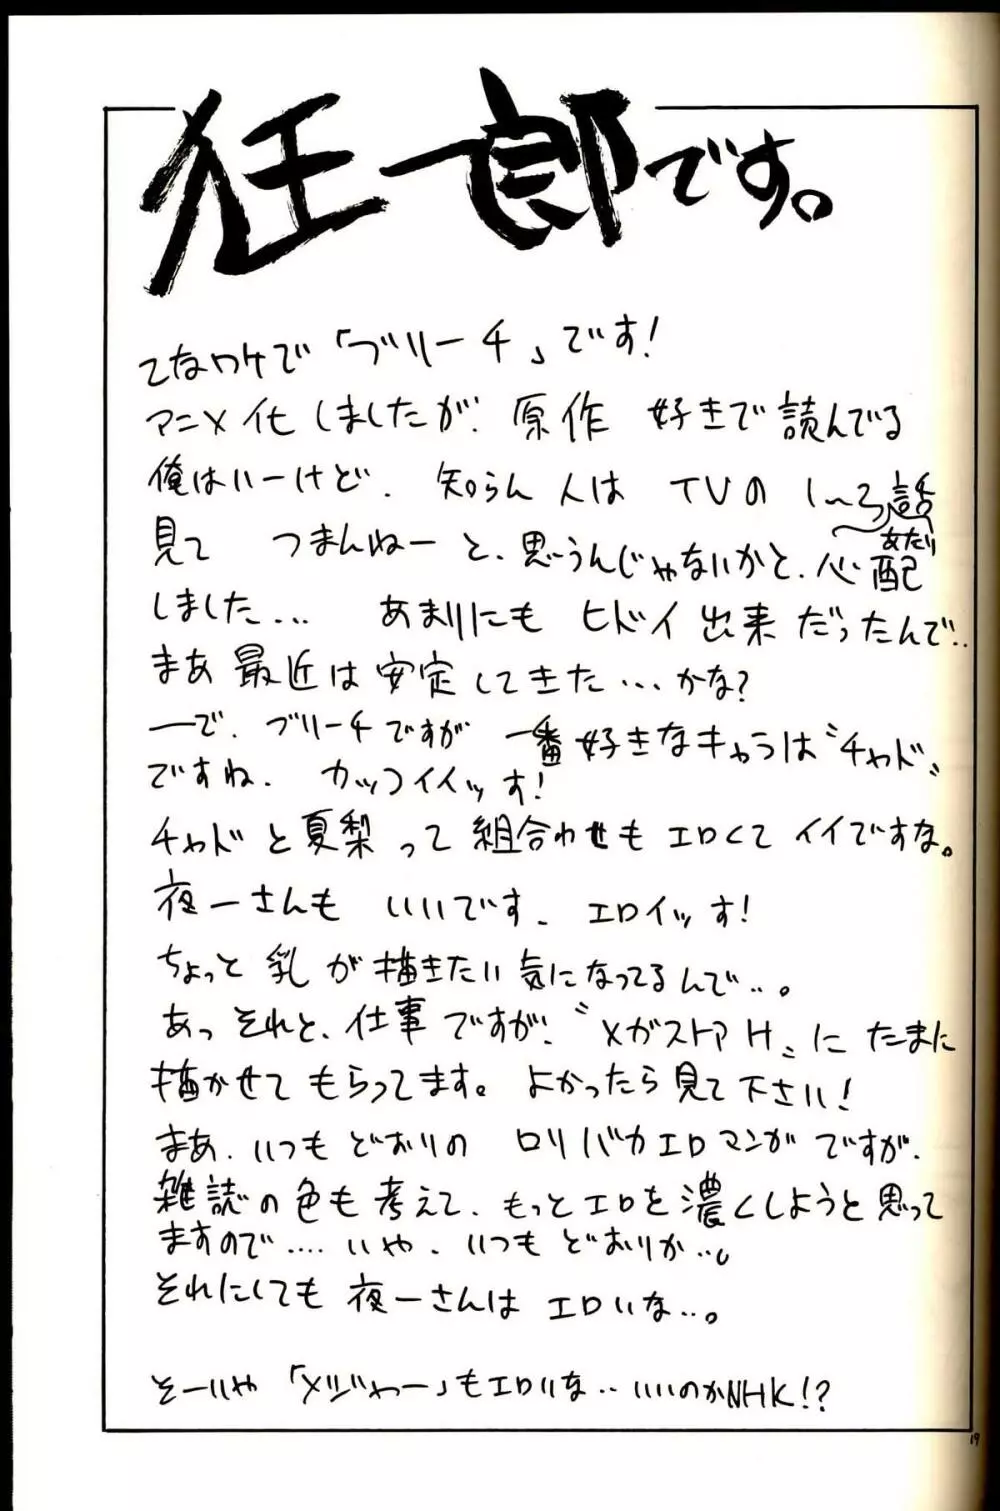 狂一郎です。
てなワケで「ブリーチ」です!
アニメ化しましたが、原作 好きで読んでる
俺はいーけど、知らん人は TVの 1〜3話あたり
見て つまんねーと、思うんじゃないかと、心配
しました... あまりにも ヒドイ出来だったんで..
まあ最近は安定してきた...かな?
ーで、ブリーチですが 一番好きなキャラは〝チャド〟
ですね、カッコイイッす!
チャドと夏梨って組合わせも エロくて イイですな。
夜一さんも いいです、エロイッす!
ちょっと 乳が描きたい気になってるんで..。
あっ それと、仕事ですが、〝メガストアH〟に たまに
描かせて もらってます。よかったら見て下さい!
まあ、いつもどおりの ロリバカエロマンガですが、
雑誌の色も考えて、もっとエロを濃くしようと思って
ますので.... いや、いつもどおりか..。
それにしても 夜一さんは エロいな..。
そーいや「メジャー」もエロいな..いいのかNHK!?
19